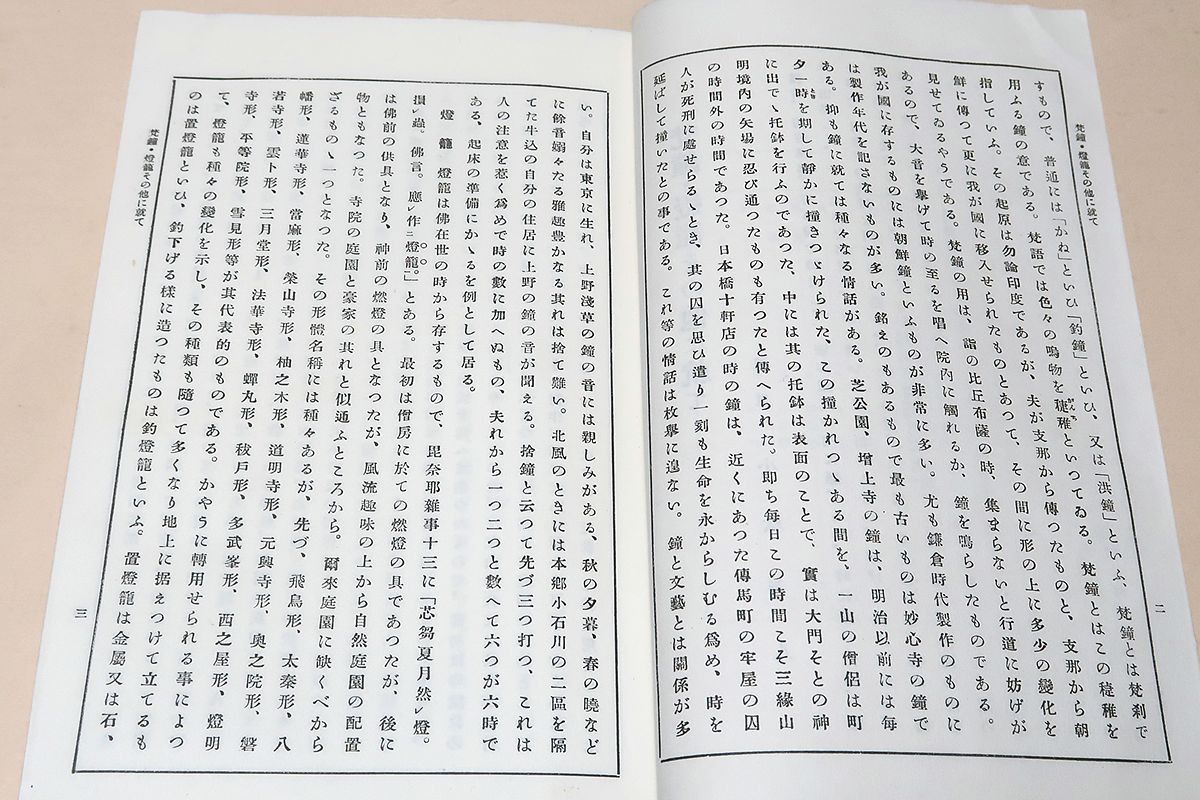 梵鐘・燈籠その他に就て
すもので、普通には「かね」といひ「釣鐘」といひ、又は「洪鐘」といふ、梵鐘とは梵刹で
用ふる鐘の意である。梵語では色々の鳴物を犍稚といつてゐる。梵鐘とはこの犍稚を
指していふ。その起原は勿論印度であるが、夫が支那から傳つたものと、支那から朝
鮮に傳つて更に我が國に移入せられたものとあつて、その間に形の上に多少の變化を
見せてゐるやうである。梵鐘の用は、詣の比丘布薩の時、集まらないと行道に妨げが
あるので、大音を擧げて時の至るを唱へ院內に觸れるか、鐘を鳴らしたものである。
我が國に存するものには朝鮮鐘といふものが非常に多い。尤も鎌倉時代製作のものに
は製作年代を記さないものが多い。銘えのもあるもので最も古いものは妙心寺の鐘で
ある。抑も鐘に就ては種々なる情話がある。芝公園、增上寺の鐘は、明治以前には每
夕一時を期して靜かに撞きつゞけられた、この撞かれつゝある間を、一山の僧侶は町
に出でゝ托鉢を行ふのであつた、中には其の托鉢は表面のことで、實は大門そとの神
明境內の矢場に忍び通つたものも有つたと傳へられた。即ち每日この時間こそ三緣山
の時間外の時間であつた。日本橋十軒店の時の鐘は、近くにあつた傳馬町の牢屋の囚
人が死刑に處せらるゝとき、其の囚を思ひ遣り一刻も生命を永からしむる爲め、時を
延ばして撞いたとの事である。これ等の情話は枚擧に遑ない。鐘と文藝とは關係が多
二
い。自分は東京に生れ、上野淺草の鐘の音には親しみがある、秋の夕暮、春の曉など
に餘音嫋々たる雅趣豊かなる其れは捨て難い。北風のときには本鄕小石川の二區を隔
てた牛込の自分の住居に上野の鐘の音が聞える。捨鐘と云つて先づ三つ打つ、これは
人の注意を惹く爲めで時の數に加へぬもの、夫れから一つ二つと數へて六つが六時で
ある、起床の準備にかゝるを例として居る。
燈籠 燈籠は佛在世の時から存するもので、毘奈耶雜事十三に「苾芻夏月然レ燈。
損レ蟲。佛言。應レ作ニ燈籠。」とある。最初は僧房に於ての燃燈の具であつたが、後に
は佛前の供具となり、神前の燃燈の具となつたが、風流趣味の上から自然庭園の配置
物ともなつた。寺院の庭園と豪家の其れと似通ふところから。爾來庭園に缺くべから
ざるものゝ一つとなつた。その形體名稱には種々あるが、先づ、飛鳥形、太秦形、八
幡形、蓮華寺形、當麻形、榮山寺形、柚之木形、道明寺形、元興寺形、奥之院形、般
若寺形、雲卜形、三月堂形、法華寺形、蟬丸形、秡戶形、多武峯形、西之屋形、燈明
寺形、平等院形、雪見形等が其代表的のものである。かやうに轉用せられる事によつ
て、燈籠も種々の變化を示し、その種類も隨つて多くなり地上に据えつけて立てるも
のは置燈籠といひ、釣下げる樣に造つたものは釣燈籠といふ。置燈籠は金屬又は石、
梵鐘・燈籠その他に就て
三